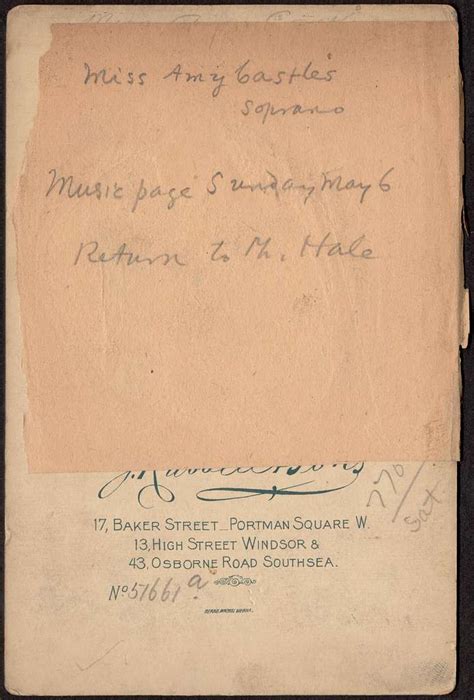 Miss Amy Castles
Soprano
Music page Sunday May 6
Return to Mr. Hale
17, BAKER STREET PORTMAN SQUARE W.
13, HIGH STREET WINDSOR &
43, OSBORNE ROAD SOUTHSEA.
No 51661 a
770/
Sat